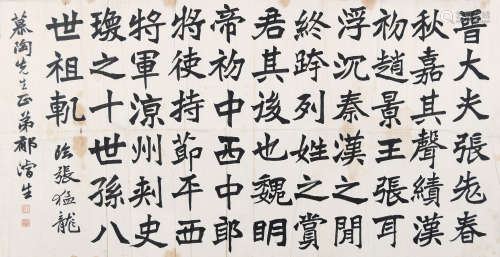 晉大夫張老春
秋嘉其聲績漢
初趙景王張耳
浮沉秦漢之閒
終跨列姓之賞
君其後也魏明
帝初中西中郎
將使持節平西
將軍涼州刺史
瓊之十世孫八
世祖軌
臨張猛龍
慕陶先生正弟